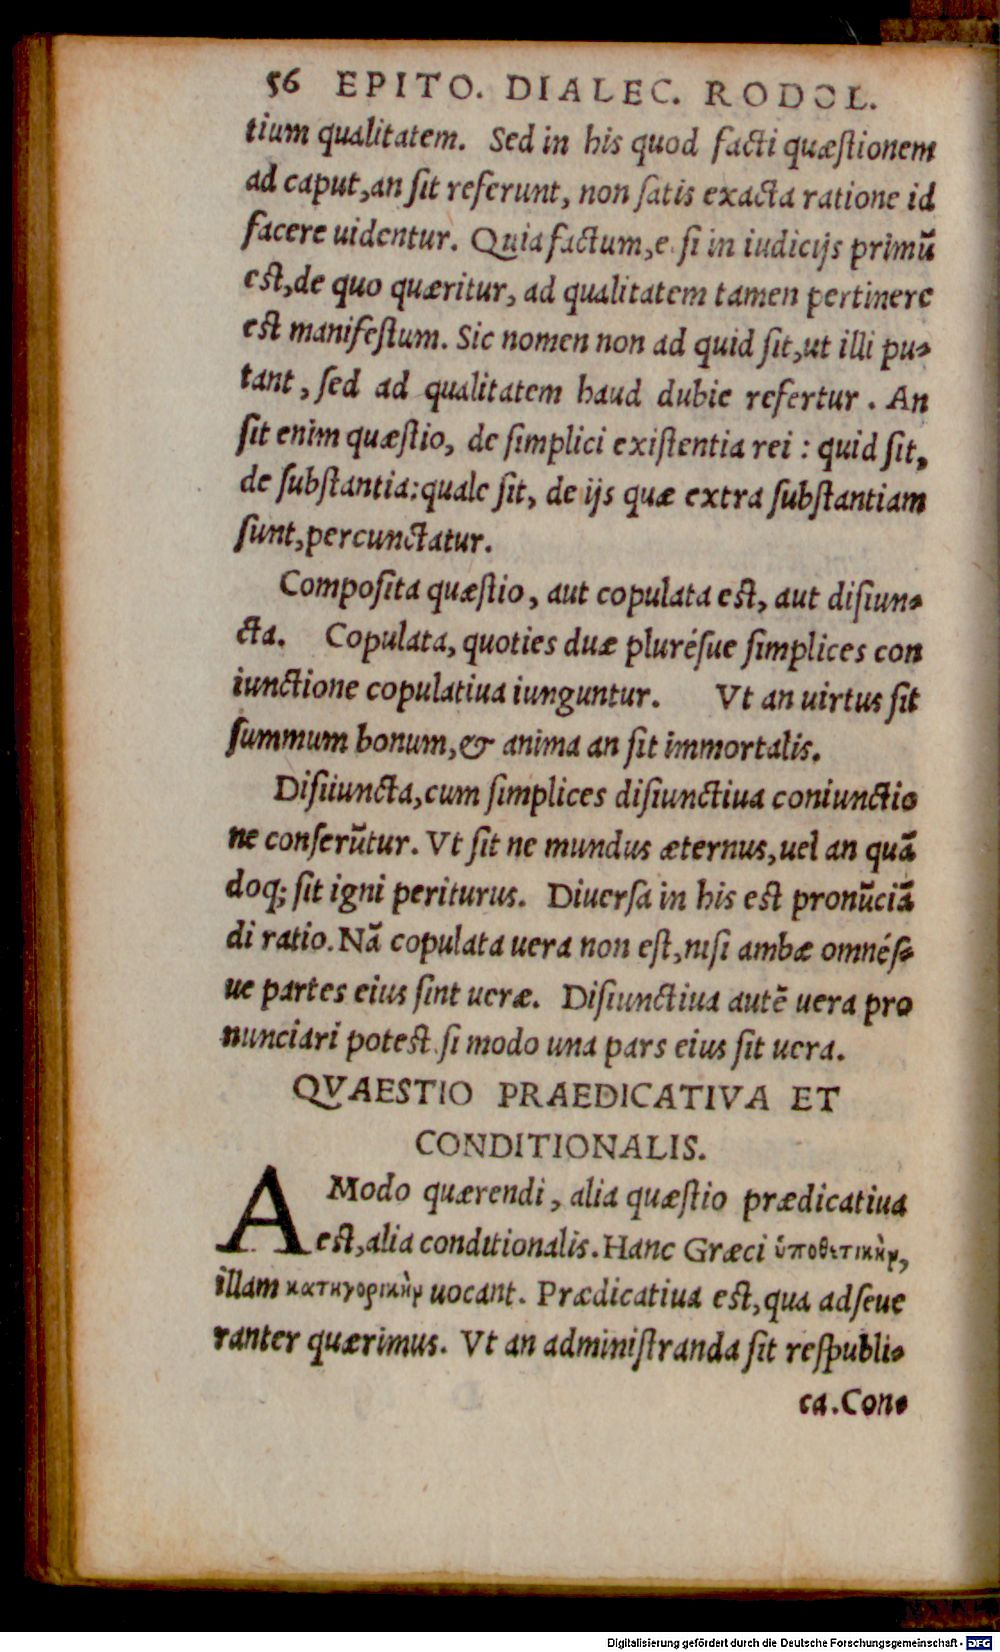 56 EPITO. DIALEC. RODOL.
tium qualitatem. Sed in his quod facti quæſtionem
ad caput,an ſit referunt, non ſatis exacta ratione id
facere uidentur. Quia factum,e ſi in iudicijs primũ
eſt,de quo quæritur, ad qualitatem tamen pertinere
eſt manifeſtum. Sic nomen non ad quid ſit,ut illi pu-
tant, ſed ad qualitatem haud dubie refertur. An
ſit enim quæſtio, de ſimplici exiſtentia rei : quid ſit,
de ſubſtantia:quale ſit, de ijs quæ extra ſubſtantiam
ſunt,percunctatur.
Compoſita quæſtio, aut copulata eſt, aut diſiun-
cta. Copulata, quoties duæ pluréſue ſimplices con
iunctione copulatiua iunguntur. Vt an uirtus ſit
ſummum bonum,& anima an ſit immortalis.
Diſiiuncta,cum ſimplices diſiunctiua coniunctio
ne conſerũtur. Vt ſit ne mundus æternus,uel an quã
doq; ſit igni periturus. Diuerſa in his eſt pronũciã
di ratio. Nã copulata uera non eſt,niſi ambæ omnéſ-
ue partes eius ſint ueræ. Diſiunctiua autẽ uera pro
nunciari poteſt ſi modo una pars eius ſit uera.
QVAESTIO PRAEDICATIVA ET
CONDITIONALIS.
A Modo quærendi, alia quæſtio prædicatiua
eſt,alia conditionalis. Hanc Græci ὑποθετικὴν,
illam κατηγορικὴν uocant. Prædicatiua eſt,qua adſeue
ranter quærimus. Vt an adminiſtranda ſit reſpubli-
ca. Con-
Digitalisierung gefördert durch die Deutsche Forschungsgemeinschaft - DFG